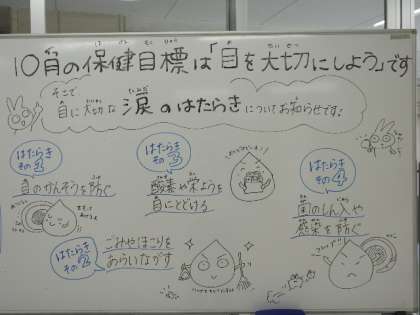 10月の保健目標は「目を大切にしよう」です
そこで、
目に大切な 涙のはたらきについてお知らせです！
はたらき
その1
目のかんそうを防ぐ
はたらき
その2
ごみやほこりを
あらいながす
はたらき
その3
酸素や栄ようを
目にとどける
はたらき
その4
菌のしん入や
感染を防ぐ